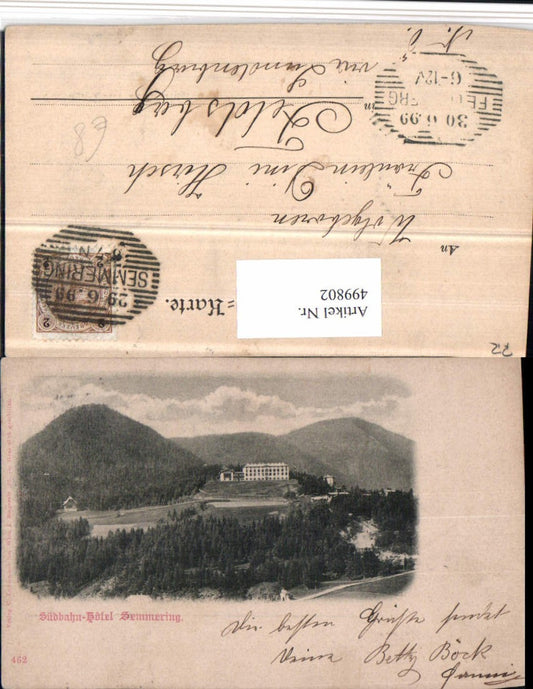 N. Ö.
via Lundenburg
in Feldsberg
Fräulein Tini Hirsch
Wolgeboren
An
=Karte.
30 6 99
6-12V
FELDSBERG
SEMMERING
29 6 99
2
2
68
Artikel Nr.
499802
22
Südbahn-Hôtel Semmering.
Die besten Grüße sendet
Betty Böck
462